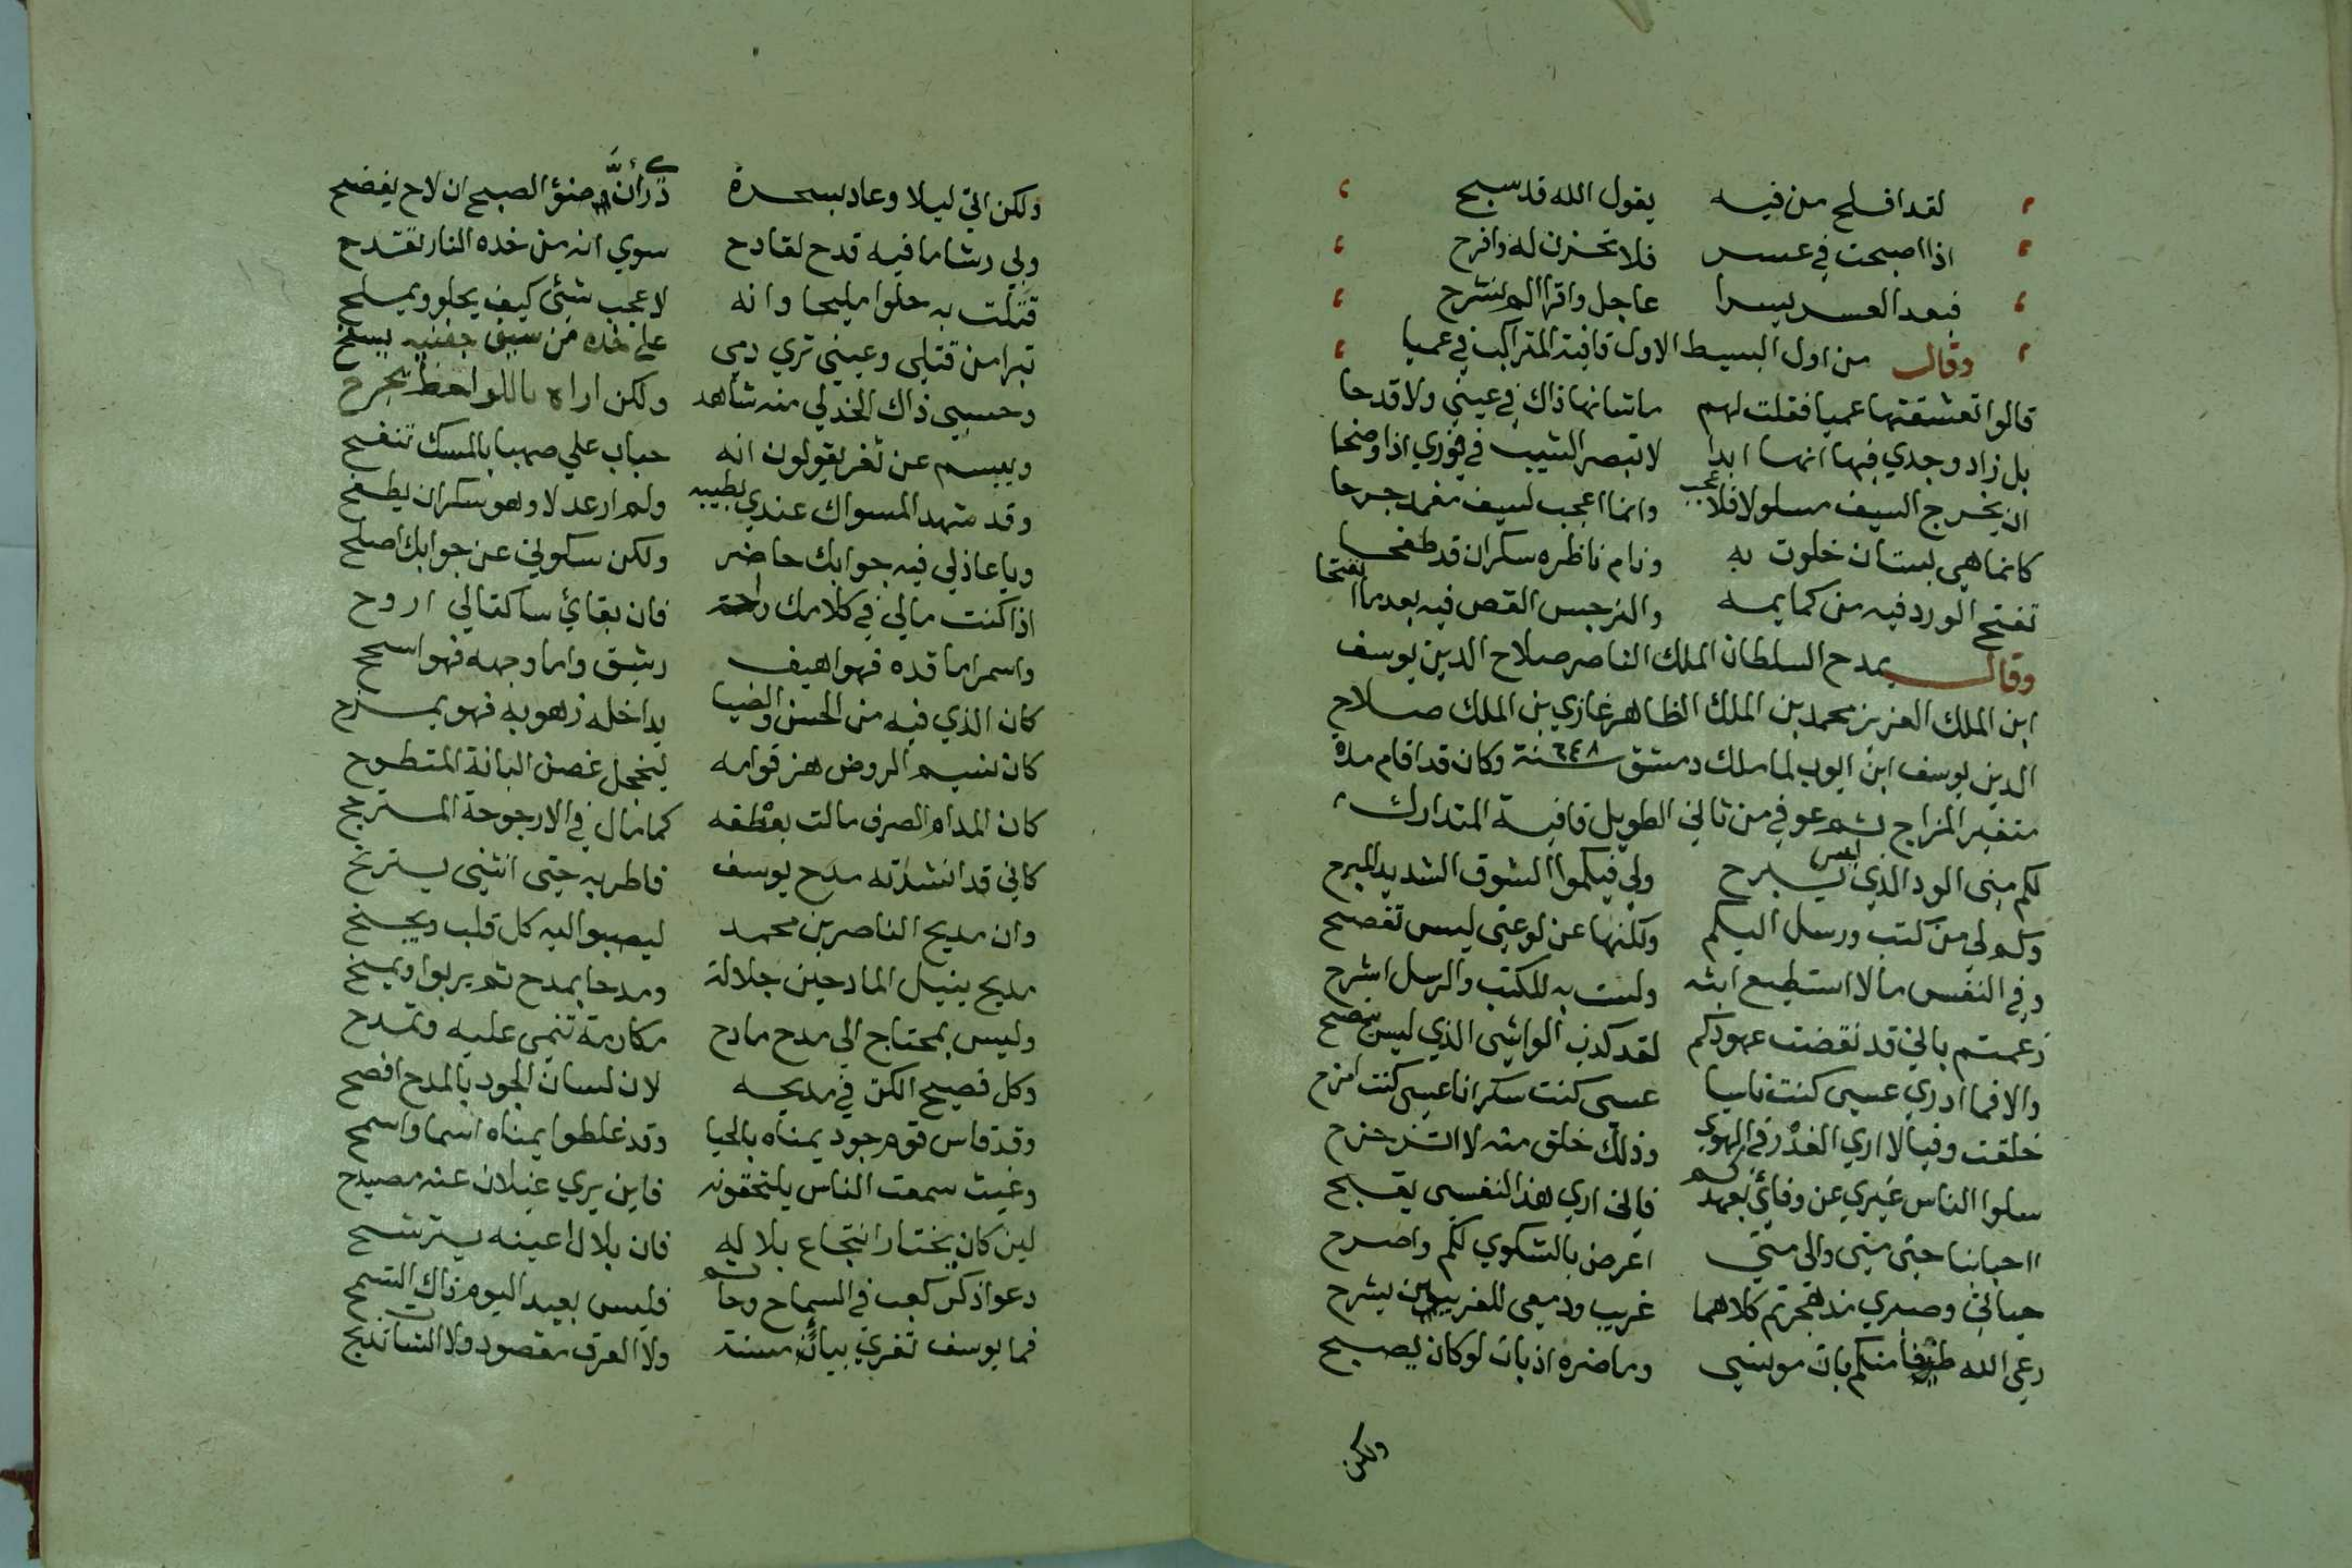 لقد افلح من فيه يقول الله قد سبح
اذا اصبحت في عسر فلا تحزن له وافرح
فبعد العسر يسرا عاجل واقرا الم نشرح
وقال من اول البسيط الاول قافية المتراكب في عميا
قالوا تعشقتها عميا فقلت لهم ما شانها ذاك في عيني ولا قدحا
بل زاد وجدي فيها انها ابدا لا تبصر الشيب في فودي اذا وضحا
ان يخرج السيف مسلولا فلا عجب وانما اعجب لسيف مغمد جرحا
كانما هي بستان خلوت به ونام ناظره سكران قد طفحا
تفتح الورد فيه من كمايمه والنرجس الغض فيه بعد ما انفتحا
وقال يمدح السلطان الملك الناصر صلاح الدين يوسف
ابن الملك العزيز محمد بن الملك الظاهر غازي بن الملك صلاح
الدين يوسف ابن ايوب لما ملك دمشق سنة ٦٤٨ وكان قد اقام مدة
متغير المزاج ثم عوفي من ثاني الطويل قافية المتدارك
لكم مني الود الذي ليس يبرح ولي فيكموا الشوق الشديد المبرح
وكم لي من كتب ورسل اليكم ولكنها عن لوعتي ليس تفصح
وفي النفس ما لا استطيع ابثه ولست به للكتب والرسل اشرح
زعمتم باني قد نقضت عهودكم لقد كذب الواشي الذي ليس ينصح
والا فما ادري عسى كنت ناسيا عسى كنت سكرانا عسى كنت امزح
خلقت وفيا لا اري الغدر في الهوي وذلك خلق منه لا اتزحزح
سلوا الناس غيري عن وفائي بعهدكم فاني اري هذا لنفسي يقبح
ااحبابنا حتى متى والى متى اعرض بالشكوي لكم واصرح
حياتي وصبري مذ هجرتم كلاهما غريب ودمعي للغريبين يشرح
رعى الله طيفا منكم بات مونسي وما ضره اذ بات لو كان يصبح
ولكن
ولكن اتى ليلا وعاد بسحرة درى أنَّ ضوء الصبح ان لاح يفضح
ولي رشا ما فيه قدح لقادح سوي انه من خده النار تقدح
قتلت به حلوا مليحا وانه لاعجب شئ كيف يحلو ويملح
تبرا من قتلي وعيني تري دمي على خده من سيف جفنيه يسفح
وحسبي ذاك الخد لي منه شاهد ولكن اراه باللواحظ يجرح
ويبسم عن ثغر يقولون انه حباب علي صهبا بالمسك تنفح
وقد شهد المسواك عندي بطيبه ولم ار عدلا وهو سكران يطفح
ويا عاذلي فيه جوابك حاضر ولكن سكوتي عن جوابك اصلح
اذا كنت مالي في كلامك راحة فان بقائي ساكتا لي اروح
واسمر اما قده فهو اهيف رشيق واما وجهه فهو اسجح
كان الذي فيه من الحسن والضيا يداخله زهو به فهو يمزح
كان نسيم الروض هز قوامه ليخجل غصن البانة المتطوح
كان المدام الصرف مالت بعطفه كما مال في الارجوحة المترجح
كاني قد انشدته مدح يوسف فاطربه حتى انثنى يترنح
وان مديح الناصر بن محمد ليصبوا اليه كل قلب ويجنح
مديح ينيل المادحين جلالة ومدحا بمدح ثم يربوا ويمنح
وليس بمحتاج الى مدح مادح مكارمة تثني عليه وتمدح
وكل فصيح الكن في مديحه لان لسان الجود بالمدح افصح
وقد قاس قوم جود يمناه بالحيا وقد غلطوا يمناه اسما واسمح
وغيث سمعت الناس ينتجعونه فاين يري غيلان عنه وصيدح
لين كان يختار انتجاع بلاله فان بلالا عينه يترشح
دعوا ذكر كعب في السماح وحاتم فليس بعيد اليوم ذاك التسمح
فما يوسف تقري بياب مسنة ولا العرف مقصود ولا الشات تذبح